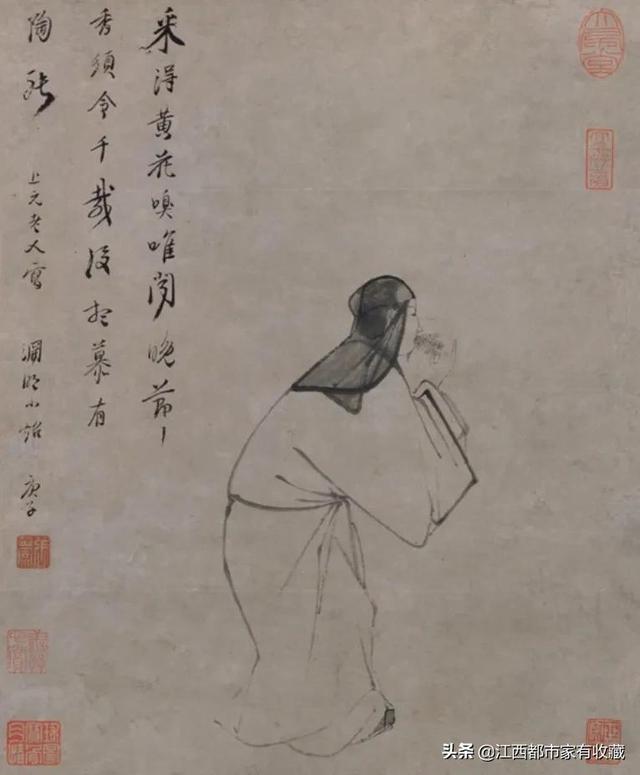 采得黃花嗅唯聞晚節
香須令千載後想慕有
陶張
上元老人寫 淵明小炤 庚子
头条 @江西都市家有收藏